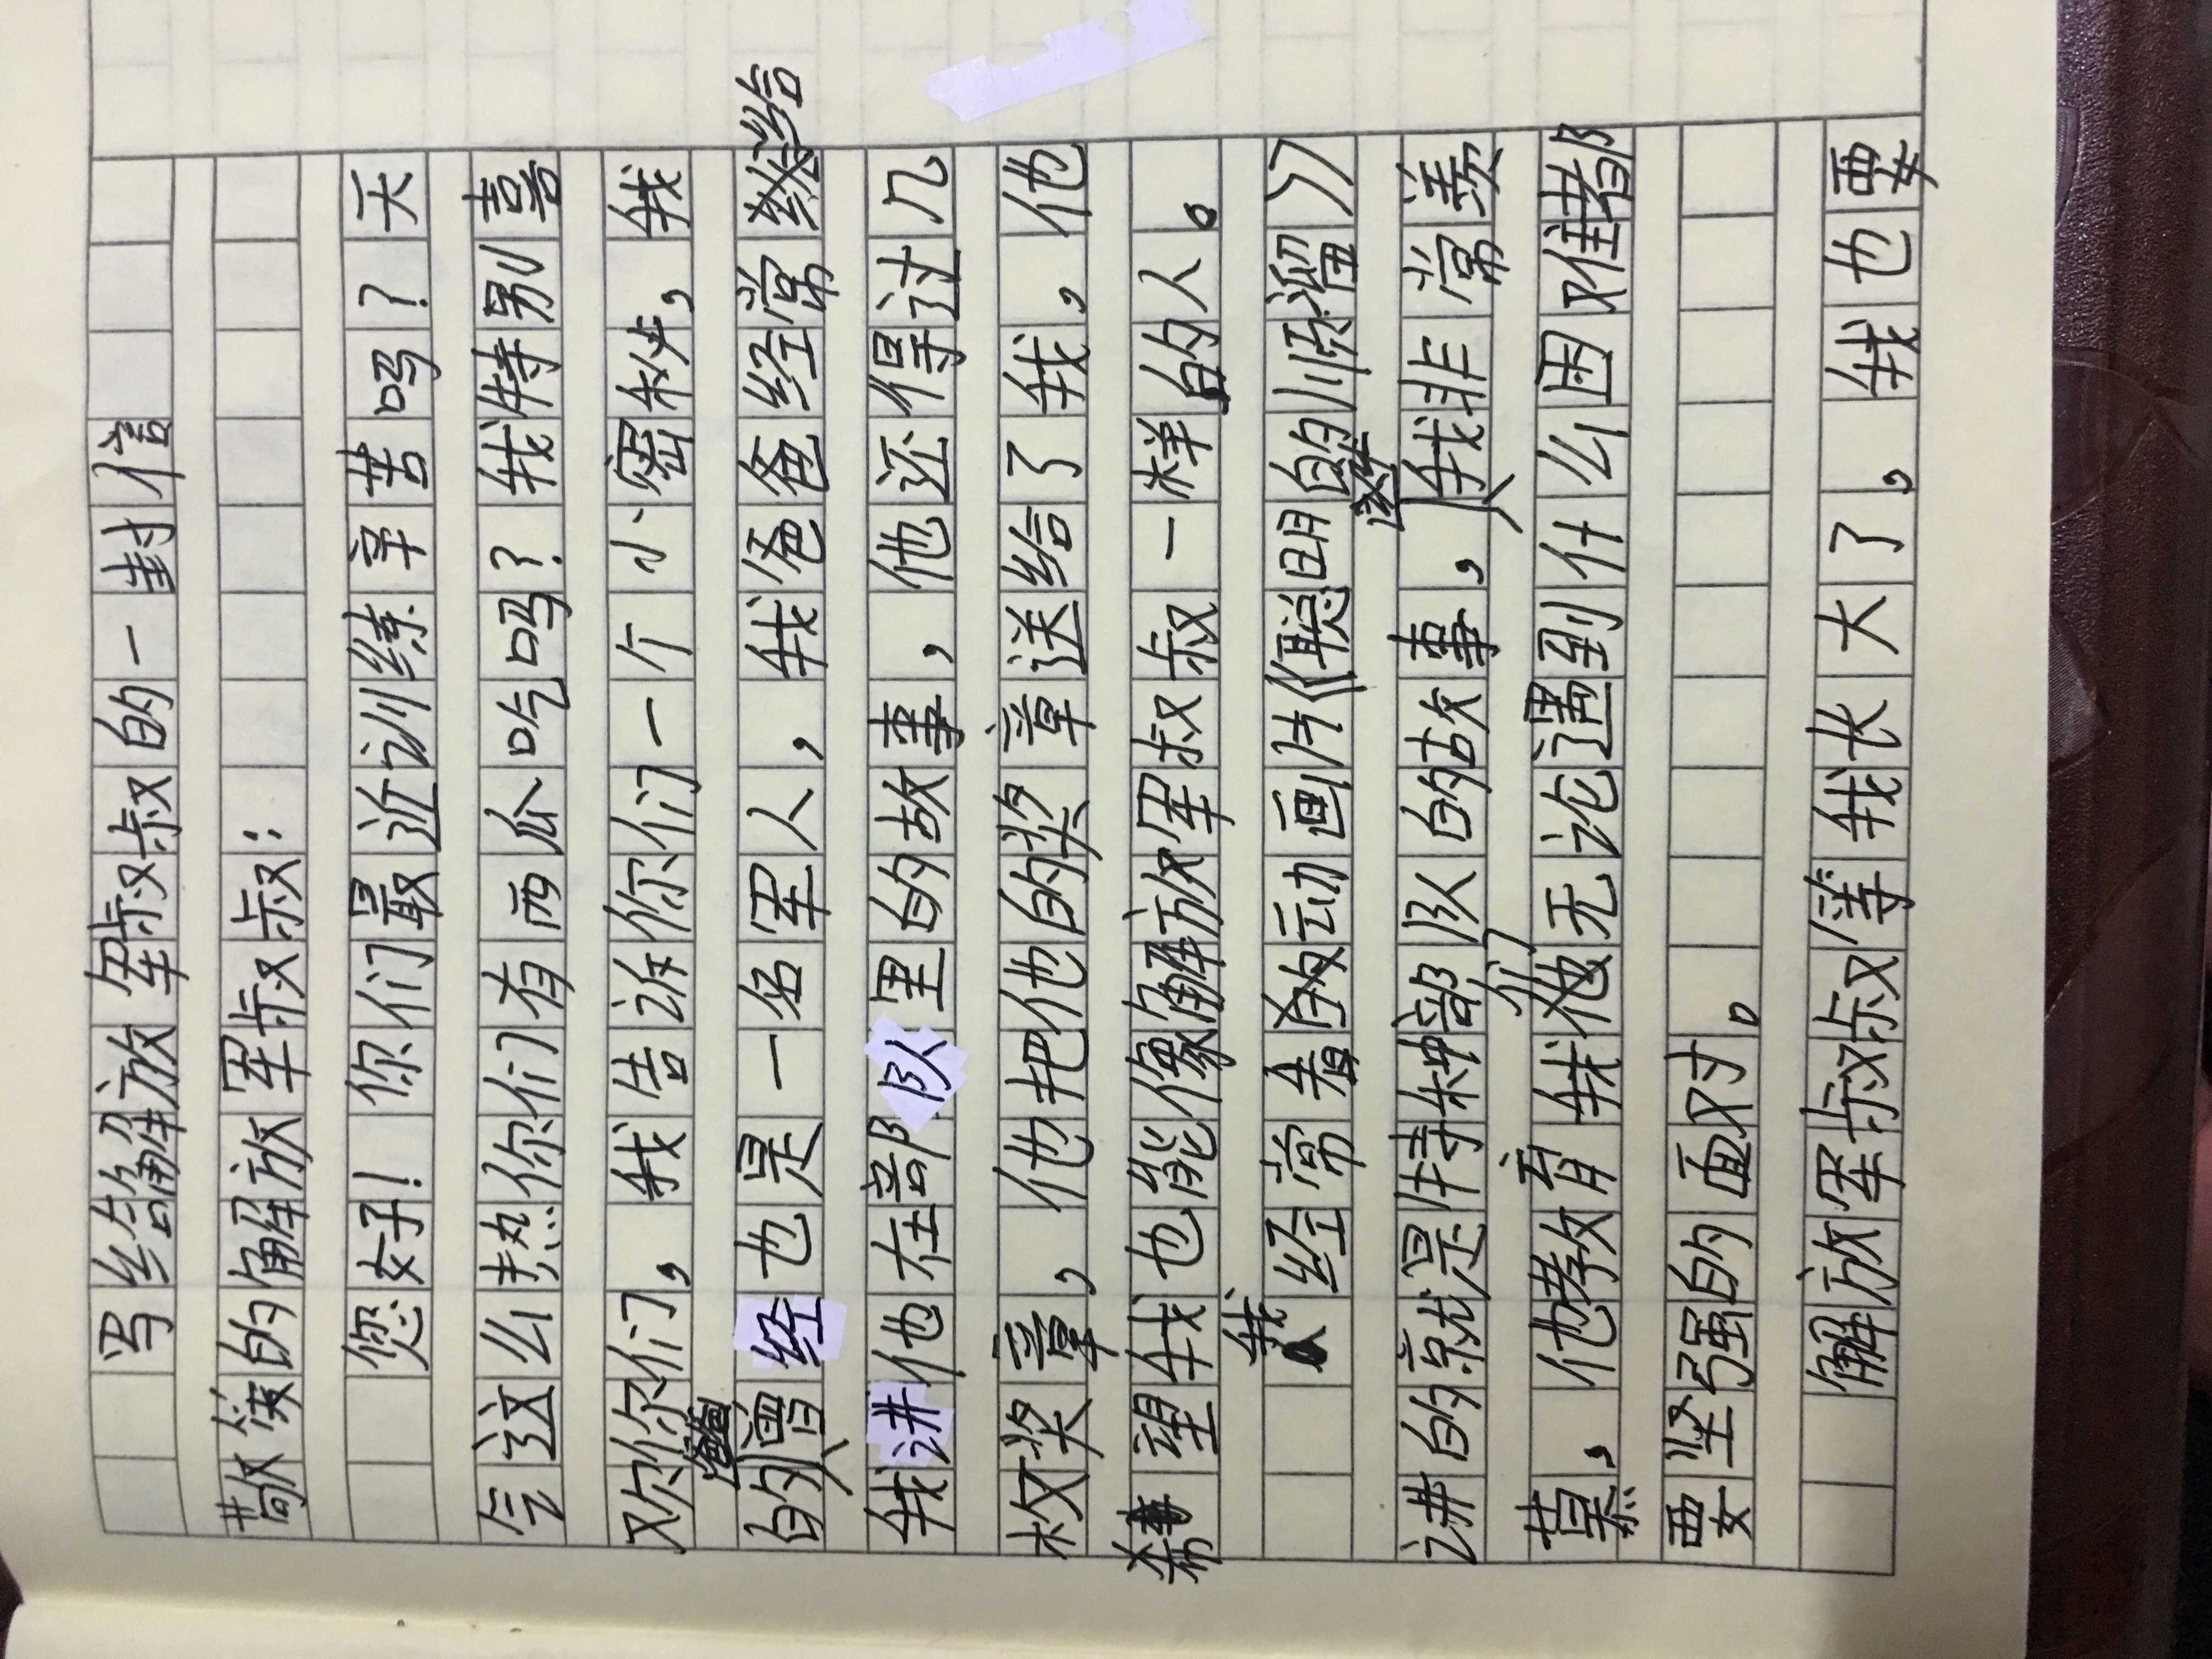 写给解放军叔叔的一封信
敬爱的解放军叔叔：
您好！你们最近训练辛苦吗？天
气这么热你们有西瓜吃吗？我特别喜
欢你们，我告诉你们一个小密秘，我
的爸爸曾经也是一名军人，我爸爸经常给
我讲他在部队里的故事，他还得过几
枚奖章，他把他的奖章送给了我，他
希望我也能像解放军叔叔一样的人。
我经常看动画片《聪明的顺溜》
讲的就是特种部队的故事，我非常羡
慕，他教育我们无论遇到什么困难都
要坚强的面对。
解放军叔叔等我长大了，我也要